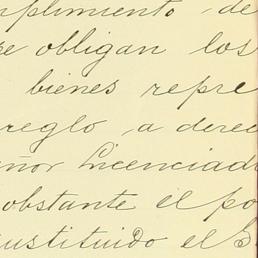 mplimiento de
se obligan los
bienes repre
reglo a derec
eñor Licenciad
obstante el po
sustituido el S